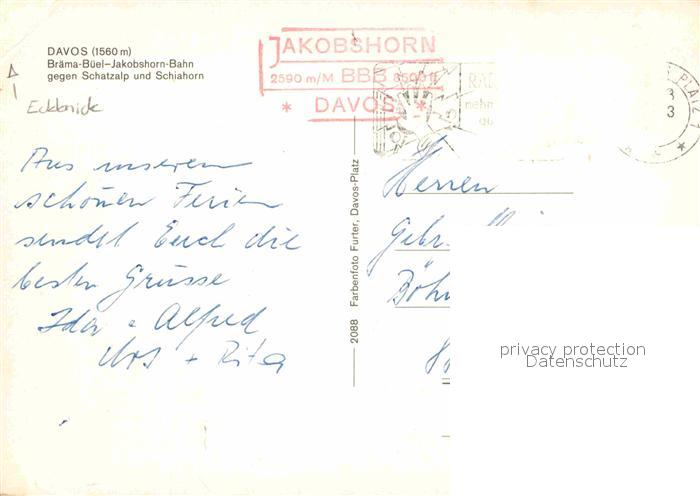 DAVOS (1560 m)
Bräma-Büel-Jakobshorn-Bahn
gegen Schatzalp und Schiahorn
Eckknick
JAKOBSHORN
2590 m/M BBB 8500 ft
* DAVOS *
PLATZ 1
Aus unseren
schönen Ferien
sendet Euch die
besten Grüsse
Ida + Alfred
Urs + Rita
2088 Farbenfoto Furter, Davos-Platz
Herren
Gebr.
privacy protection
Datenschutz